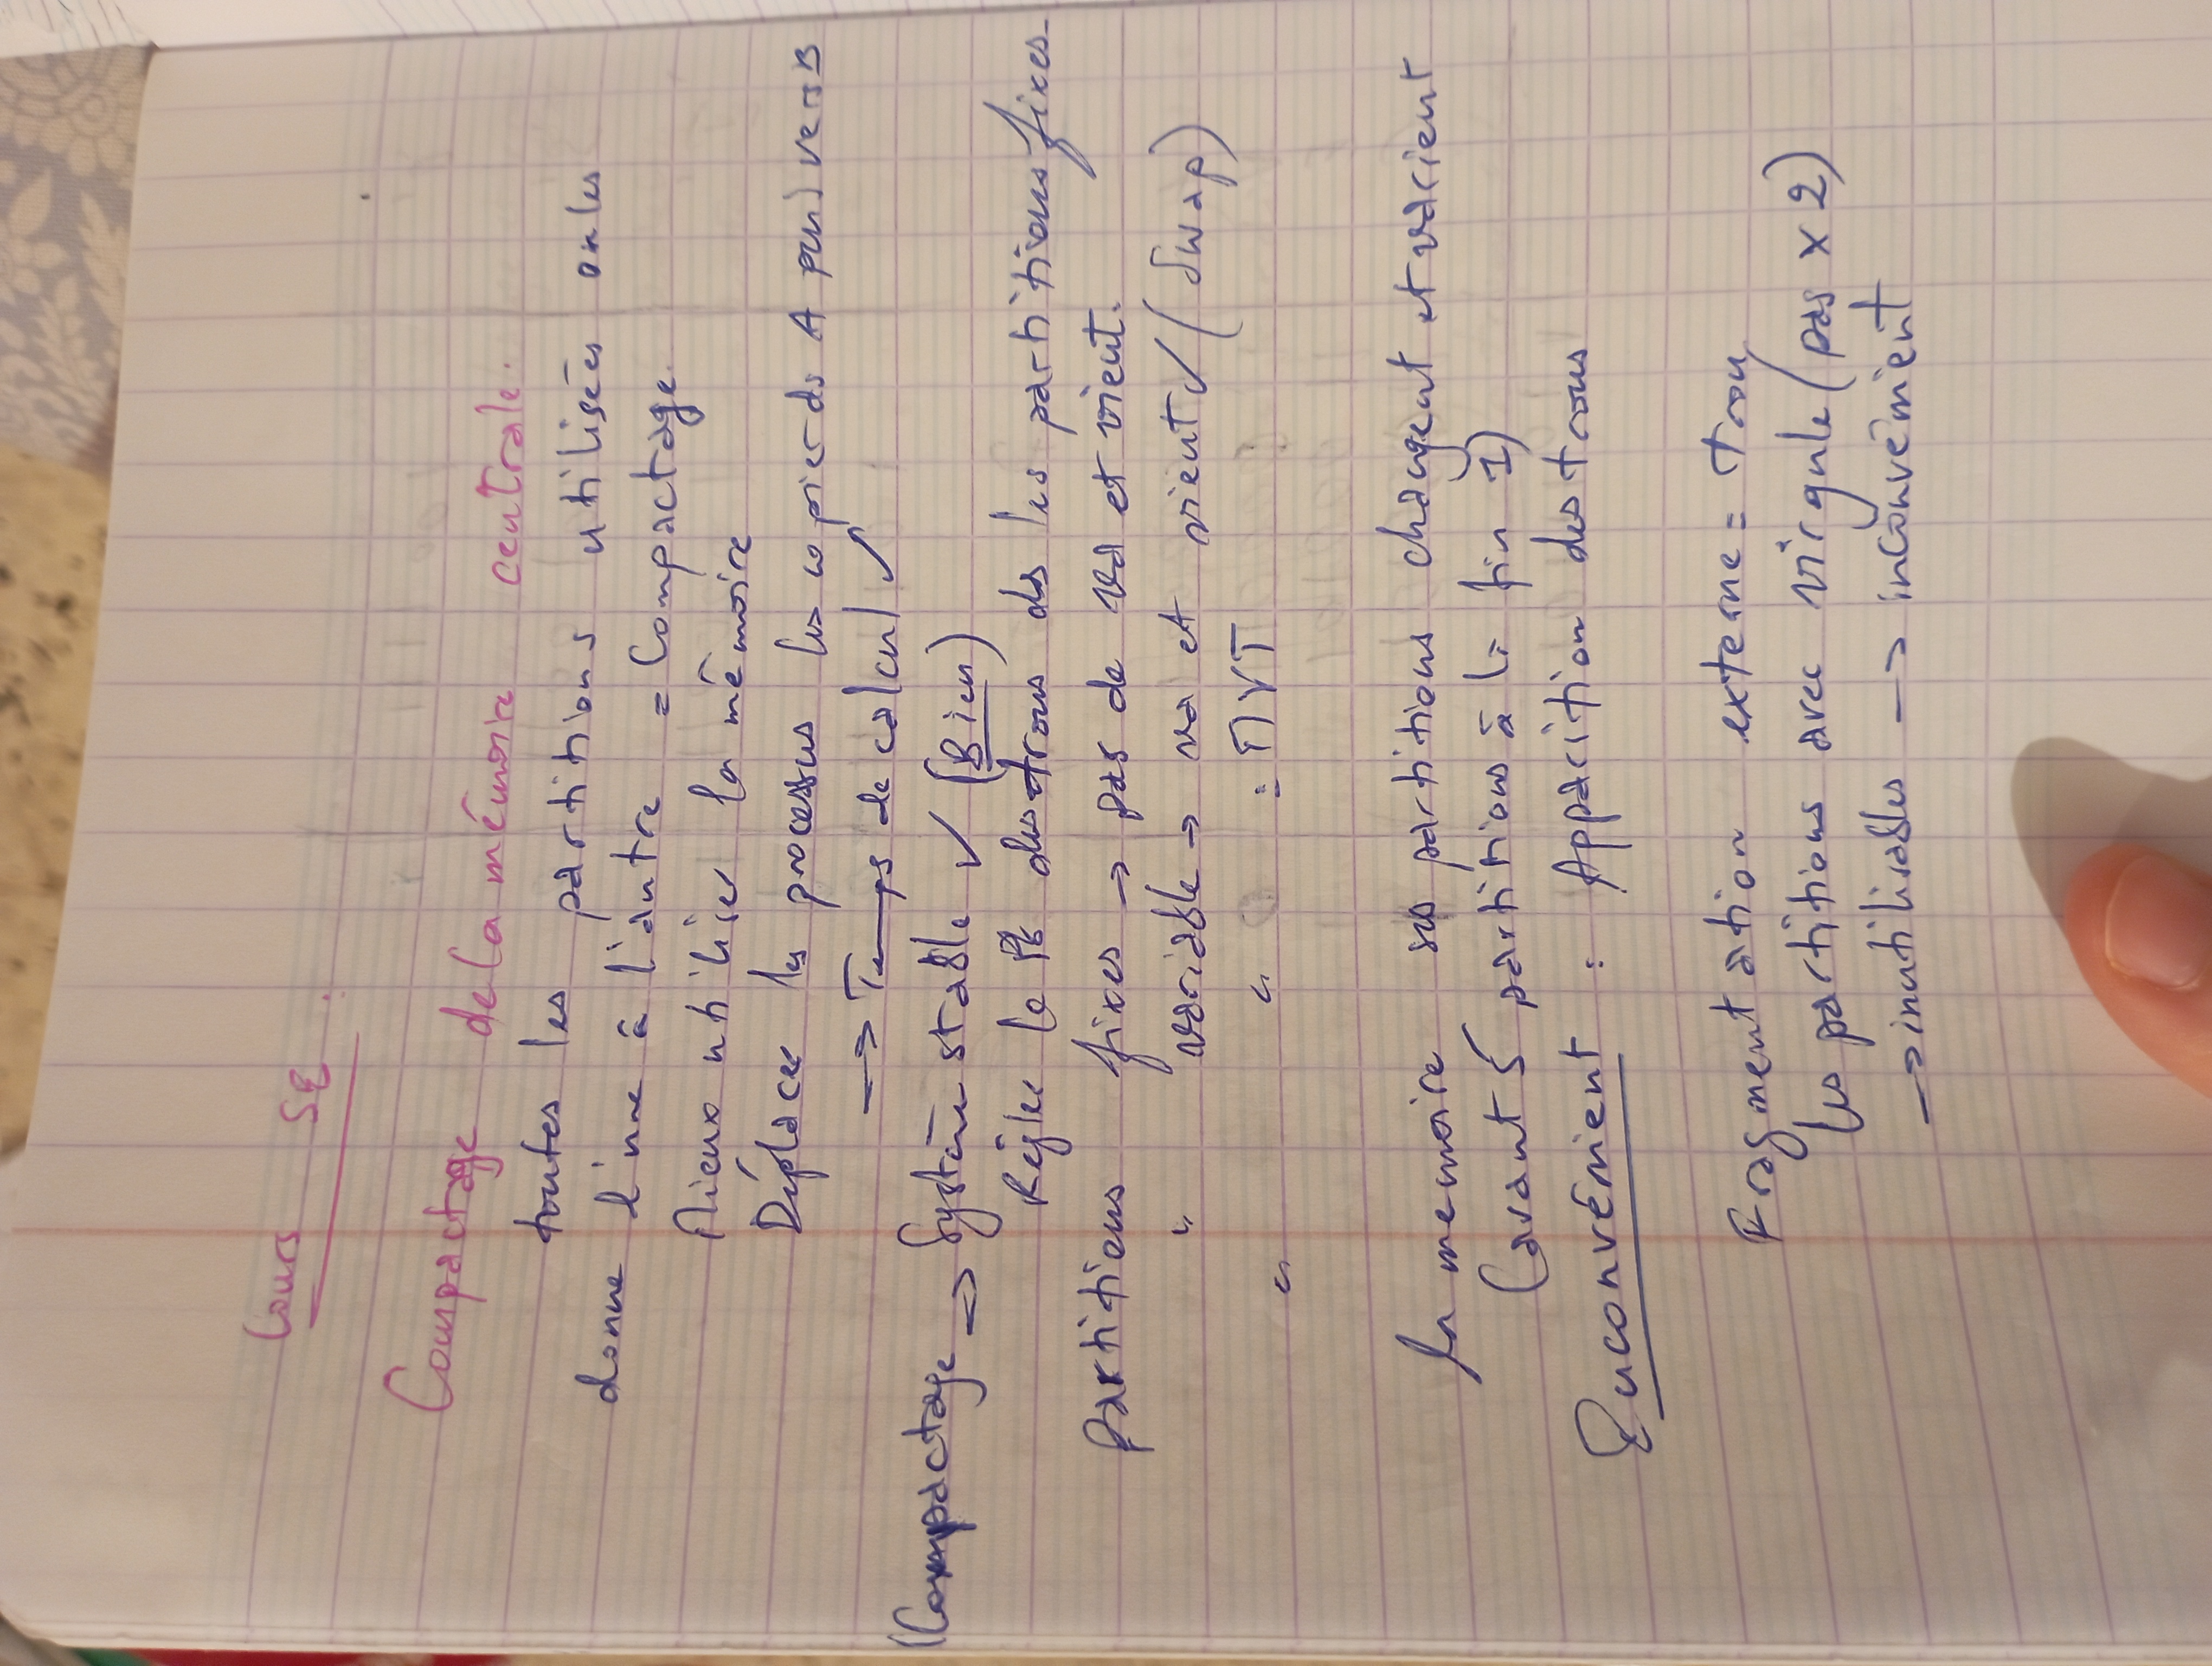 Cours SE :
Compactage de la mémoire centrale.
toutes les partitions utilisées on les
donne l'une à l'autre = Compactage.
Mieux utiliser la mémoire
Déplacer les processus les copier de A puis vers B
→ Temps de calcul ✓
(Compactage → Système stable ✓ (Bien)
Règle le Pb des trous ds les partitions fixes.
Partitions fixes → pas de va et vient.
" variable → va et vient ✓ (Swap)
" " : MVT
La memoire ses partitions changent et varient
(avant 5 partitions à la fin 1)
Inconvénient : Apparition des trous
Fragmentation externe = trou
les partitions avec virgule (pas x 2)
→ inutilisables → inconvénient